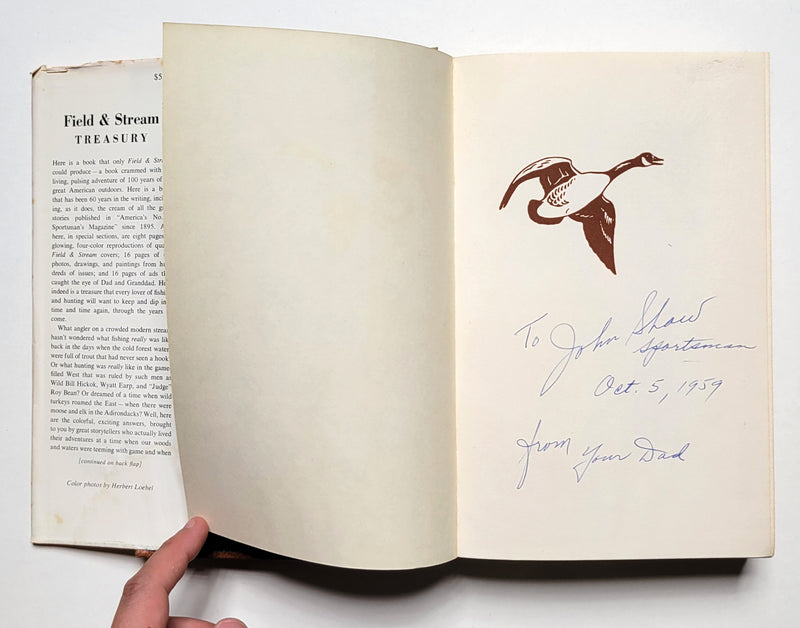 $5
Field & Stream
TREASURY
Here is a book that only Field & Stre
could produce—a book crammed with
living, pulsing adventure of 100 years of
great American outdoors. Here is a b
that has been 60 years in the writing, incl
ing, as it does, the cream of all the g
stories published in "America's No.
Sportsman's Magazine" since 1895. A
here, in special sections, are eight pages
glowing, four-color reproductions of qua
Field & Stream covers; 16 pages of
photos, drawings, and paintings from hu
dreds of issues; and 16 pages of ads th
caught the eye of Dad and Granddad. He
indeed is a treasure that every lover of fishi
and hunting will want to keep and dip in
time and time again, through the years
come.
What angler on a crowded modern stream
hasn't wondered what fishing really was lik
back in the days when the cold forest water
were full of trout that had never seen a hook
Or what hunting was really like in the game-
filled West that was ruled by such men as
Wild Bill Hickok, Wyatt Earp, and "Judge"
Roy Bean? Or dreamed of a time when wild
turkeys roamed the East—when there were
moose and elk in the Adirondacks? Well, here
are the colorful, exciting answers, brought
to you by great storytellers who actually lived
their adventures at a time when our woods
and waters were teeming with game and when
[continued on back flap]
Color photos by Herbert Loebel
To John Shaw
Sportsman
Oct. 5, 1959
from Your Dad